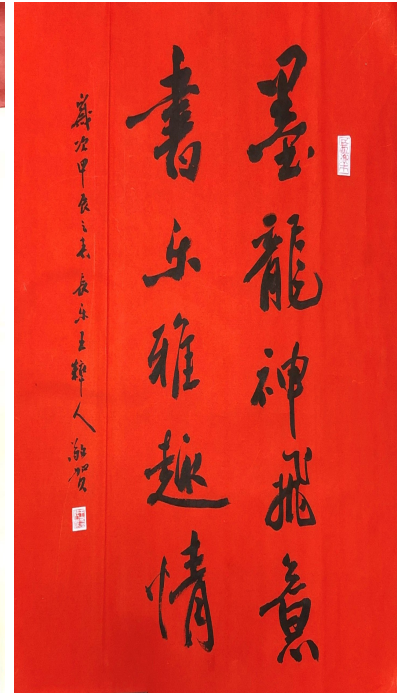 墨龍神飛意
书乐雅趣情
歲次甲辰之春長乐王樺人敬賀